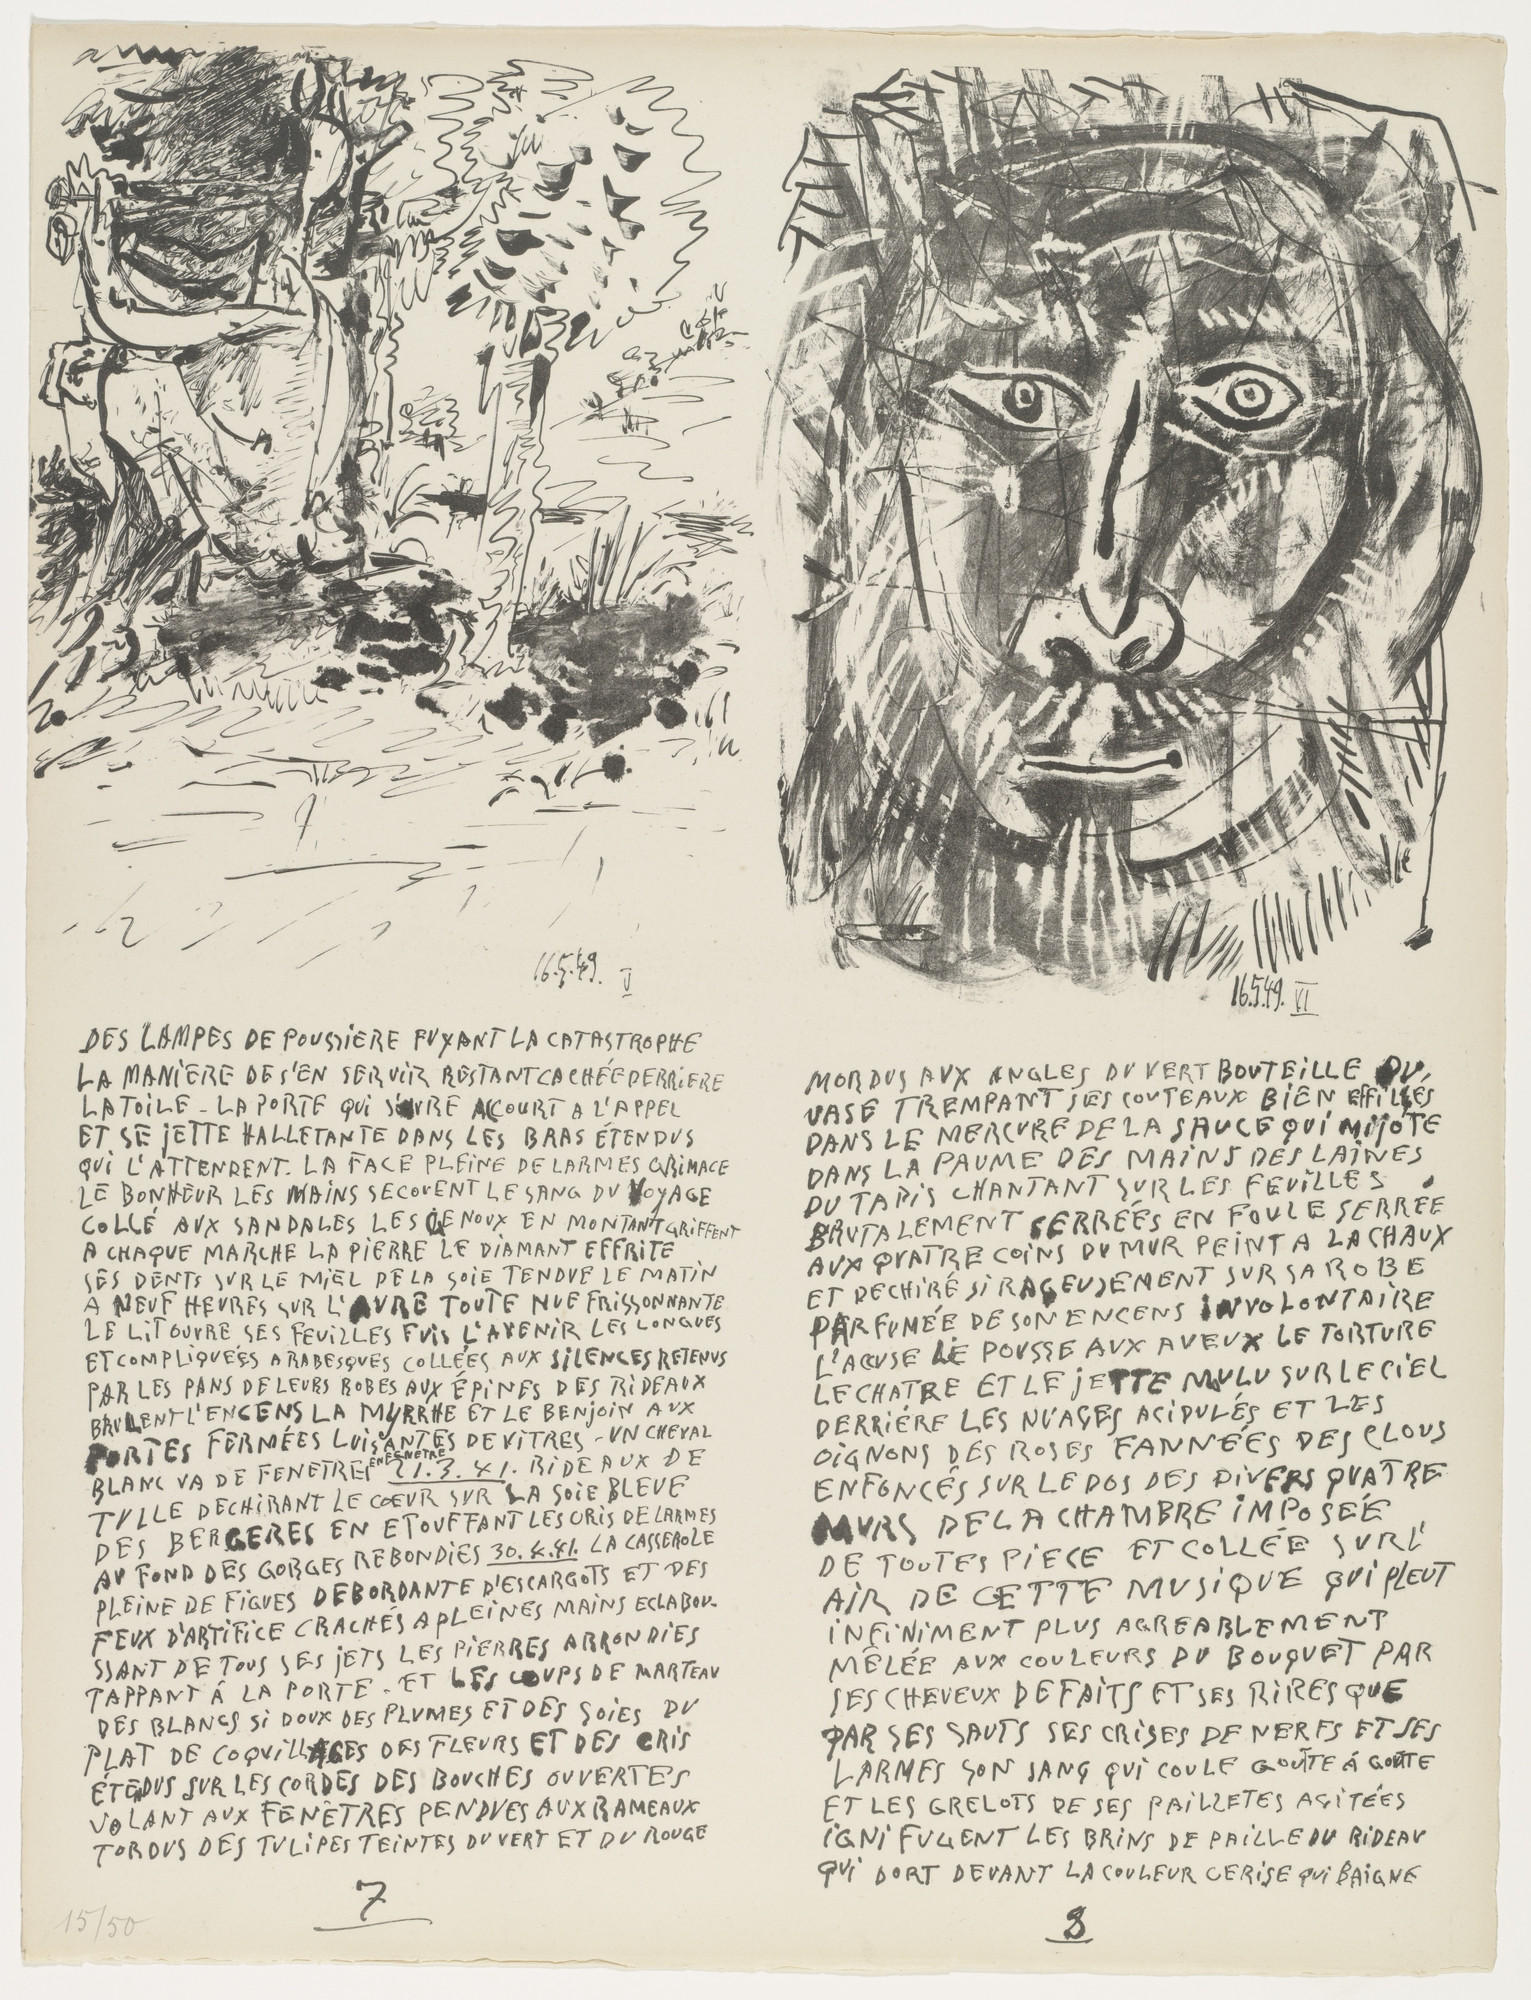 16.5.49. V
DES LAMPES DE POUSSIERE FUYANT LA CATASTROPHE
LA MANIERE DE S'EN SERVIR RESTANT CACHÉE DERRIERE
LA TOILE - LA PORTE QUI S'OUVRE ACCOURT A L'APPEL
ET SE JETTE HALLETANTE DANS LES BRAS ÉTENDUS
QUI L'ATTENDENT. LA FACE PLEINE DE LARMES GRIMACE
LE BONHEUR LES MAINS SECOUENT LE SANG DU VOYAGE
COLLÉ AUX SANDALES LES GENOUX EN MONTANT GRIFFENT
A CHAQUE MARCHE LA PIERRE LE DIAMANT EFFRITE
SES DENTS SUR LE MIEL DE LA SOIE TENDUE LE MATIN
A NEUF HEURES SUR L'AVRE TOUTE NUE FRISSONNANTE
LE LIT OUVRE SES FEUILLES FUIS L'AVENIR LES LONGUES
ET COMPLIQUÉES ARABESQUES COLLÉES AUX SILENCES RETENUS
PAR LES PANS DE LEURS ROBES AUX ÉPINES DES RIDEAUX
BRULENT L'ENCENS LA MYRRHE ET LE BENJOIN AUX
PORTES FERMÉES LUISANTES DE VITRES - UN CHEVAL
BLANC VA DE FENETRE EN FENETRE 21.3.41. RIDEAUX DE
TULLE DECHIRANT LE CŒUR SUR LA SOIE BLEUE
DES BERGERES EN ETOUFFANT LES CRIS DE LARMES
AU FOND DES GORGES REBONDIES 30.4.41. LA CASSEROLE
PLEINE DE FIGUES DEBORDANTE D'ESCARGOTS ET DES
FEUX D'ARTIFICE CRACHÉS A PLEINES MAINS ECLABOU-
SSANT DE TOUS SES JETS LES PIERRES ARRONDIES
TAPPANT Á LA PORTE - ET LES COUPS DE MARTEAU
DES BLANCS SI DOUX DES PLUMES ET DES SOIES DU
PLAT DE COQUILLAGES DES FLEURS ET DES CRIS
ÉTEDUS SUR LES CORDES DES BOUCHES OUVERTES
VOLANT AUX FENÊTRES PENDUES AUX RAMEAUX
TORDUS DES TULIPES TEINTES DU VERT ET DU ROUGE
7
15/50
16.5.49. VI
MORDUS AUX ANGLES DU VERT BOUTEILLE DU
VASE TREMPANT SES COUTEAUX BIEN EFFILÉS
DANS LE MERCURE DE LA SAUCE QUI MIJOTE
DANS LA PAUME DES MAINS DES LAINES
DU TAPIS CHANTANT SUR LES FEUILLES
BRUTALEMENT SERRÉES EN FOULE SERRÉE
AUX QUATRE COINS DU MUR PEINT A LA CHAUX
ET DECHIRÉ SI RAGEUSEMENT SUR SA ROBE
PARFUMÉE DE SON ENCENS INVOLONTAIRE
L'ACUSE LE POUSSE AUX AVEUX LE TORTURE
LE CHATRE ET LE JETTE MULU SUR LE CIEL
DERRIÉRE LES NUAGES ACIDULÉS ET LES
OIGNONS DES ROSES FANNÉES DES CLOUS
ENFONCÉS SUR LE DOS DES DIVERS QUATRE
MURS DE LA CHAMBRE IMPOSÉE
DE TOUTES PIECE ET COLLÉE SUR L'
AIR DE CETTE MUSIQUE QUI PLEUT
INFINIMENT PLUS AGREABLEMENT
MÊLÉE AUX COULEURS DU BOUQUET PAR
SES CHEVEUX DEFAITS ET SES RIRES QUE
PAR SES SAUTS SES CRISES DE NERFS ET SES
LARMES SON SANG QUI COULE GOUTE Á GOUTE
ET LES GRELOTS DE SES PAILLETES AGITÉES
IGNIFUGENT LES BRINS DE PAILLE DU RIDEAU
QUI DORT DEVANT LA COULEUR CERISE QUI BAIGNE
8